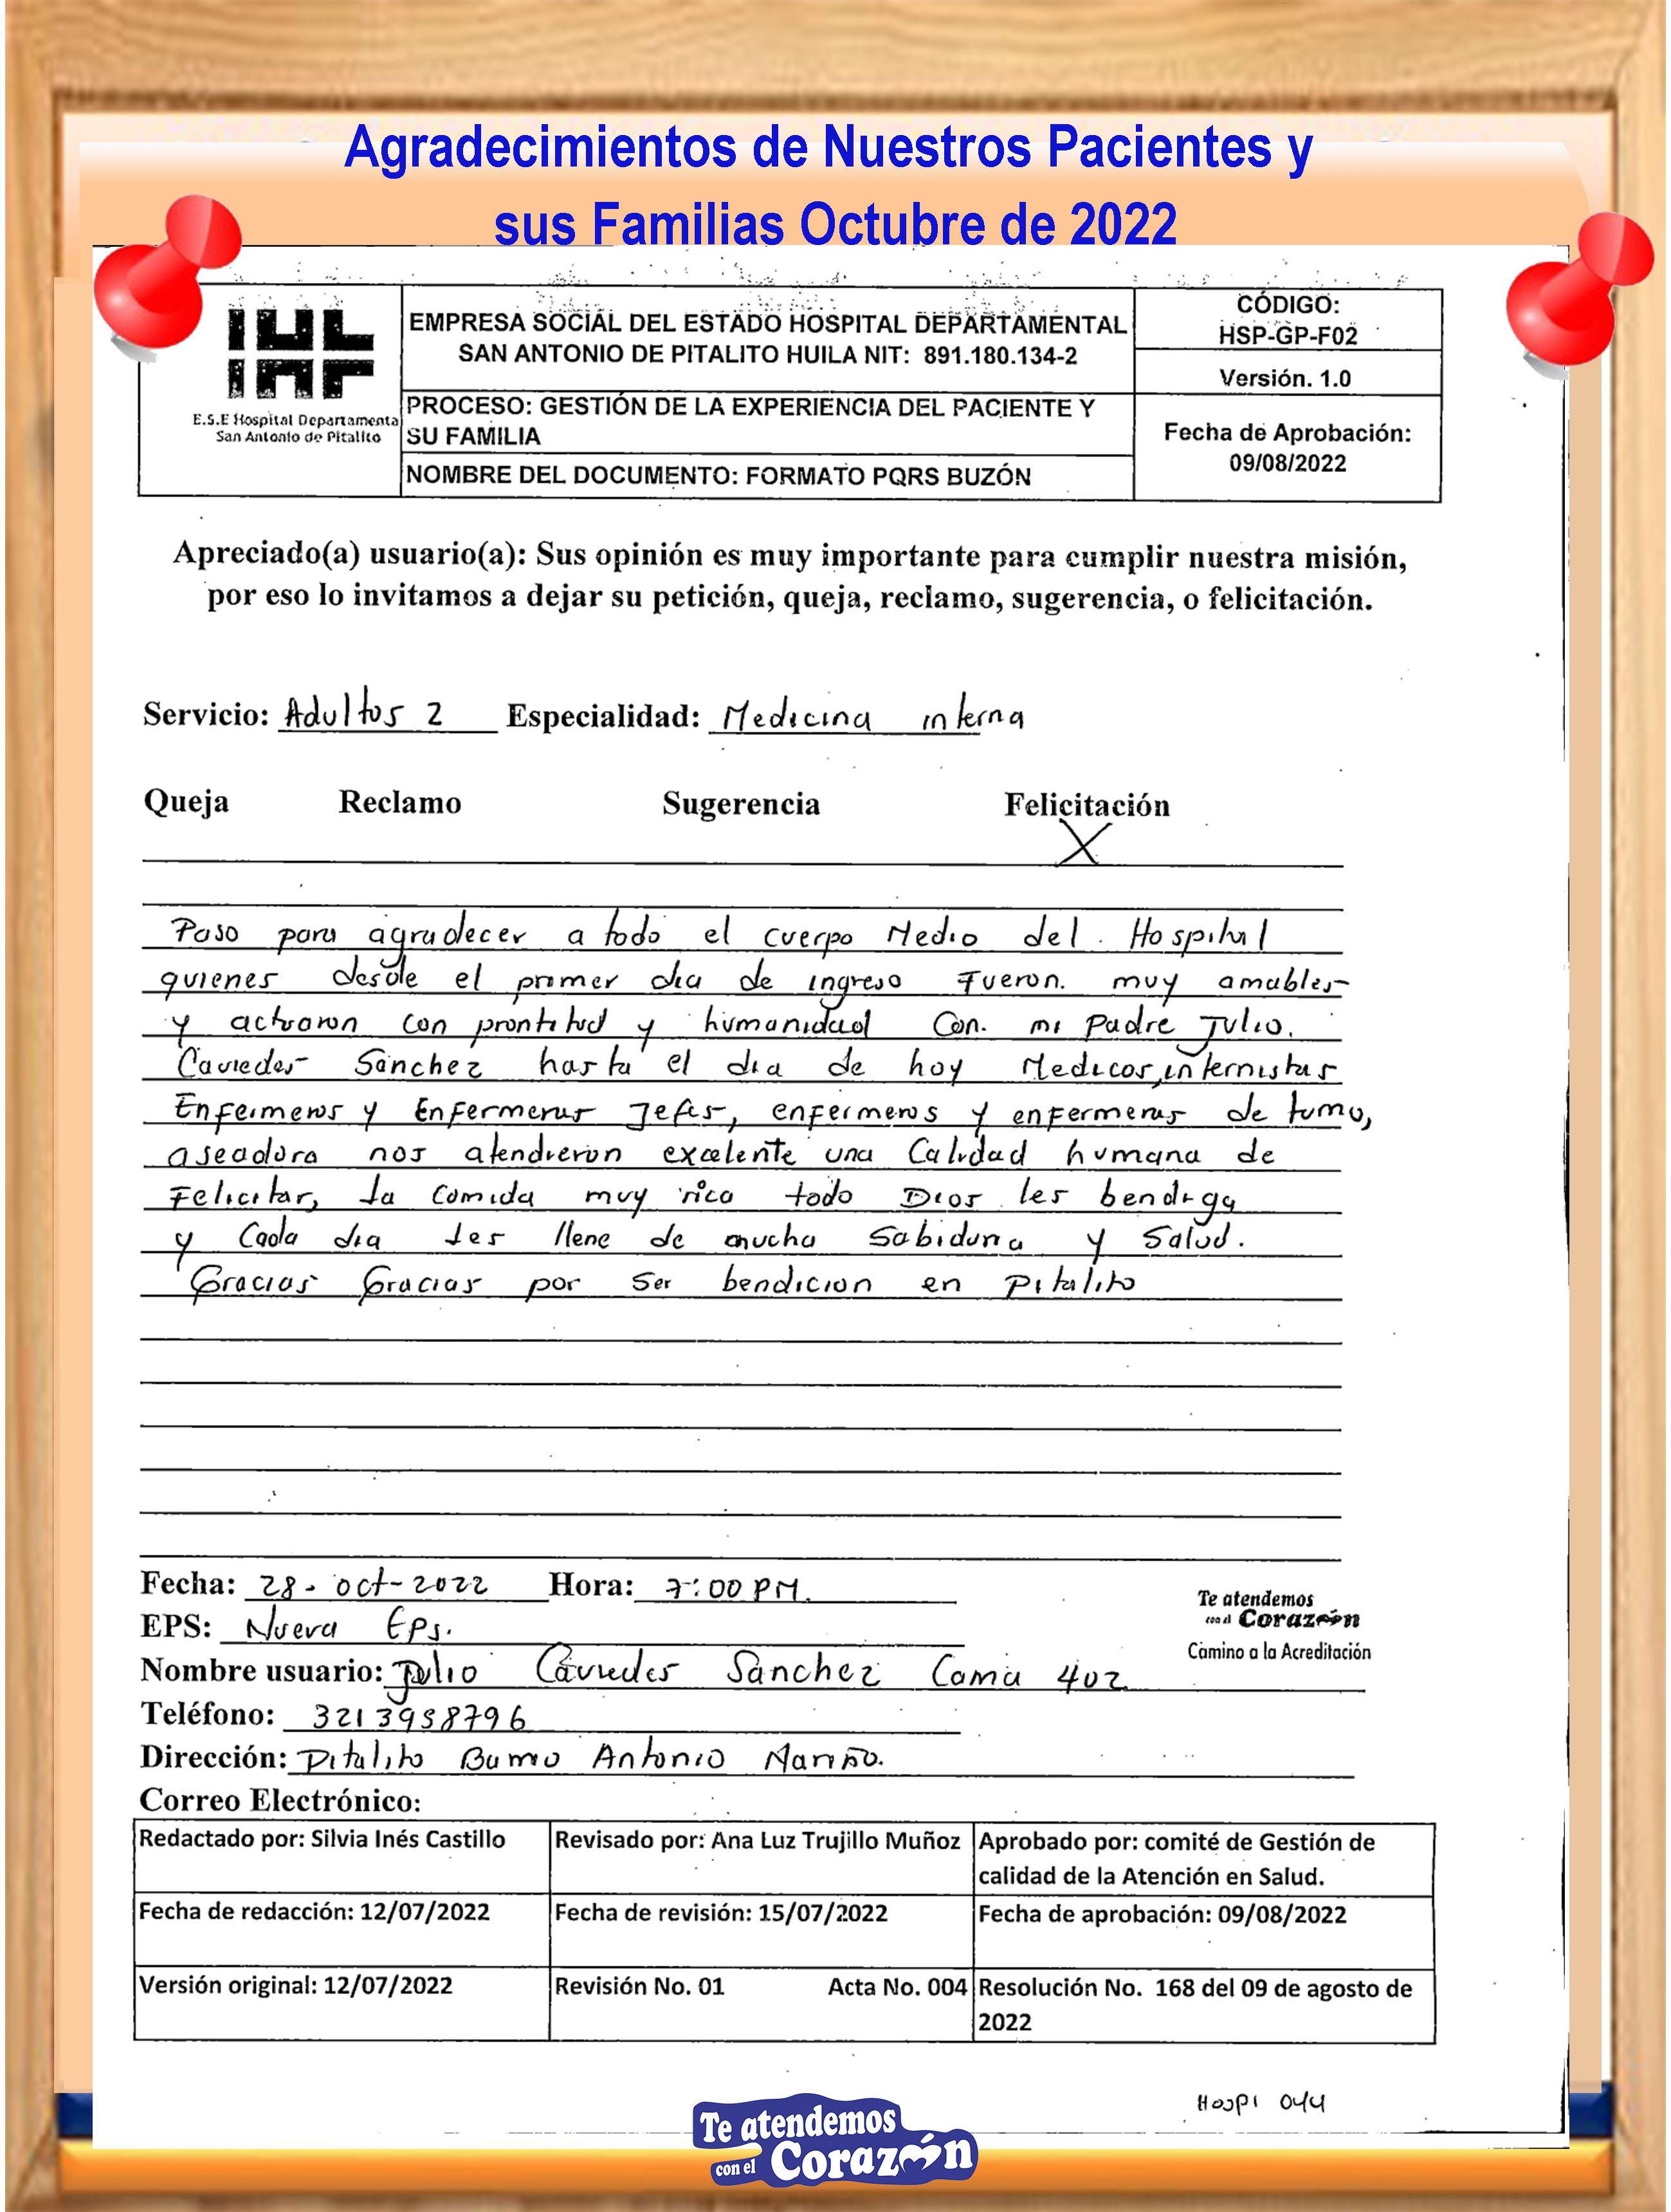 Agradecimientos de Nuestros Pacientes y
sus Familias Octubre de 2022
E.S.E Hospital Departamental
San Antonio de Pitalito
EMPRESA SOCIAL DEL ESTADO HOSPITAL DEPARTAMENTAL
SAN ANTONIO DE PITALITO HUILA NIT: 891.180.134-2
PROCESO: GESTIÓN DE LA EXPERIENCIA DEL PACIENTE Y
SU FAMILIA
NOMBRE DEL DOCUMENTO: FORMATO PQRS BUZÓN
CÓDIGO:
HSP-GP-F02
Versión. 1.0
Fecha de Aprobación:
09/08/2022
Apreciado(a) usuario(a): Sus opinión es muy importante para cumplir nuestra misión,
por eso lo invitamos a dejar su petición, queja, reclamo, sugerencia, o felicitación.
Servicio: Adultos 2 Especialidad: Medicina interna
Queja Reclamo Sugerencia Felicitación
X
Paso para agradecer a todo el cuerpo Medio del Hospital
quienes desde el primer dia de ingreso Fueron. muy amables
y actuaron con prontitud y humanidad Con. mi Padre Julio.
Cavieder Sánchez hasta el dia de hoy Medicos, internistas
Enfermeros y Enfermeras Jefes, enfermeros y enfermeras de turno,
aseadora nos atendieron excelente una Calidad humana de
Felicitar, la comida muy rica todo Dios les bendiga
y Cada dia les llene de mucha Sabiduria y Salud.
Gracias Gracias por ser bendicion en Pitalito
Fecha: 28- oct-2022 Hora: 7:00 PM.
EPS: Nueva Eps.
Nombre usuario: Julio Caviedes Sánchez Cama 402
Teléfono: 3213958796
Dirección: Pitalito Barrio Antonio Nariño.
Correo Electrónico:
Te atendemos
con el Corazón
Camino a la Acreditación
Redactado por: Silvia Inés Castillo Revisado por: Ana Luz Trujillo Muñoz Aprobado por: comité de Gestión de
calidad de la Atención en Salud.
Fecha de redacción: 12/07/2022 Fecha de revisión: 15/07/2022 Fecha de aprobación: 09/08/2022
Versión original: 12/07/2022 Revisión No. 01 Acta No. 004 Resolución No. 168 del 09 de agosto de
2022
Hospi 044
Te atendemos
con el Corazón